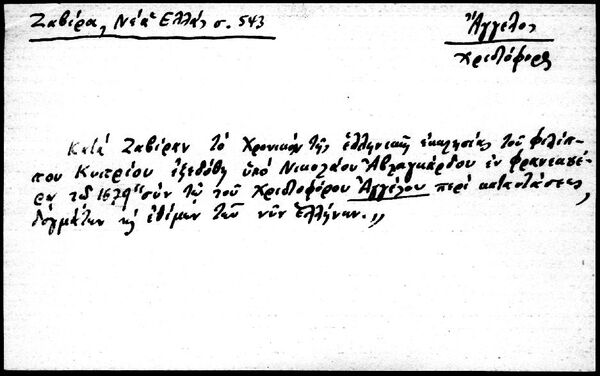 Ζαβίρα, Νέα Ελλάς σ. 543
Ἄγγελος
Χριστόφορος
Κατά Ζαβίραν τό Χρονικόν τῆς ἑλληνικῆς ἐκκλησίας τοῦ Φιλίπ-
που Κυπρίου ἐξεδόθη ὑπό Νικολάου Ἀβλαγκάρδου ἐν Φρανεκαέ-
ρᾳ τῷ 1679 "σύν τῷ τοῦ Χριστοφόρου Ἀγγέλου περί καταστάσεως,
δογμάτων κ ἐθίμων τῶν νῦν ἑλλήνων."